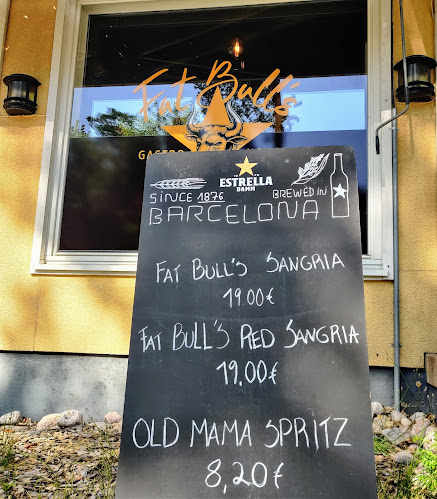 Fat Bull's
GAST
ESTRELLA
DAMM
SINCE 1876
BREWED IN
BARCELONA
FAT BULL'S SANGRIA
19.00€
FAT BULL'S RED SANGRIA
19,00€
OLD MAMA SPRITZ
8,20€